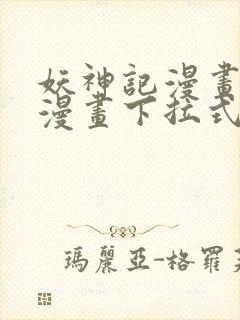 妖神記漫畫
漫畫下拉式
瑪麗亞-格羅